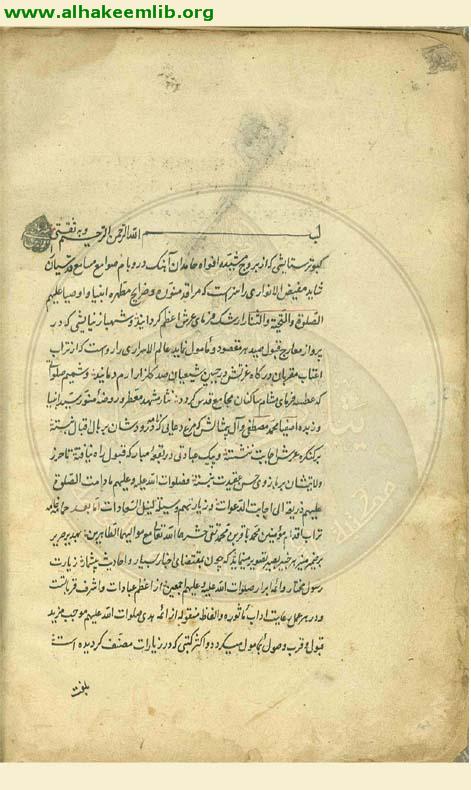 www.alhakeemlib.org
بسم الله الرحمن الرحیم وبه ثقتی
کبوتر ستایشی که از بروج مشیده افواه حامدان آهنک در و بام صوامع مسامع قدسیان
نماید مفیض الانواری را سزاست که مراقد منوره و ضرایح مطهره انبیا و اوصیا علیهم
الصلوة والتحیة والثنا را رشک فرمای عرش اعظم کردانیده و شهباز نیایشی که در
پرواز معارج قبول صید هر مقصود و مأمول نماید عالم الاسراری را رواست که از تراب
اعتاب مقربان درکاه عزتش در جبین شیعیان صد کلزار ارم دمانیده و شمیم صلواتی
که عطسه فرمای مشام ساکنان مجامع قدس کردد نثار مشهد معطر و روضه منور سید انبیا
و زبده اصفیا محمد مصطفی وآل بیشانش که مرغ دعایی که از فرودشان بر بال اقبال نبسته
بر کنکره عرش اجابت ننشسته و پیک عبادتی در نقطه مبارکه قبول راه نیافته تا حرز
ولایتشان بر بازوی حسن عقیدت نبسته فصلوات الله علیه وعلیهم ما دامت الصلوة
علیهم ذریعة الی اجابت الدعوات و زیارتهم وسیلة لنیل السعادات اما بعد
تراب اقدام مؤمنین محمد باقر بن محمد تقی حشرهما الله تعالی مع موالیهما الطاهرین
بر ضمیر منیر هر خبیر بصیر تصویر مینماید که چون بمقتضای اخبار بسیار و احادیث بیشمار زیارت
رسول مختار وائمه ابرار صلوات الله علیه وعلیهم اجمعین از اعظم عبادات و اشرف قرباتست
و در هر عمل رعایت اداب مأثوره والفاظ منقوله از ائمه هدی صلوات الله علیهم موجب مزید
قبول و قرب وصول بمأمول میکردد و اکثر کتبی که در زیارات مصنف کردیده است